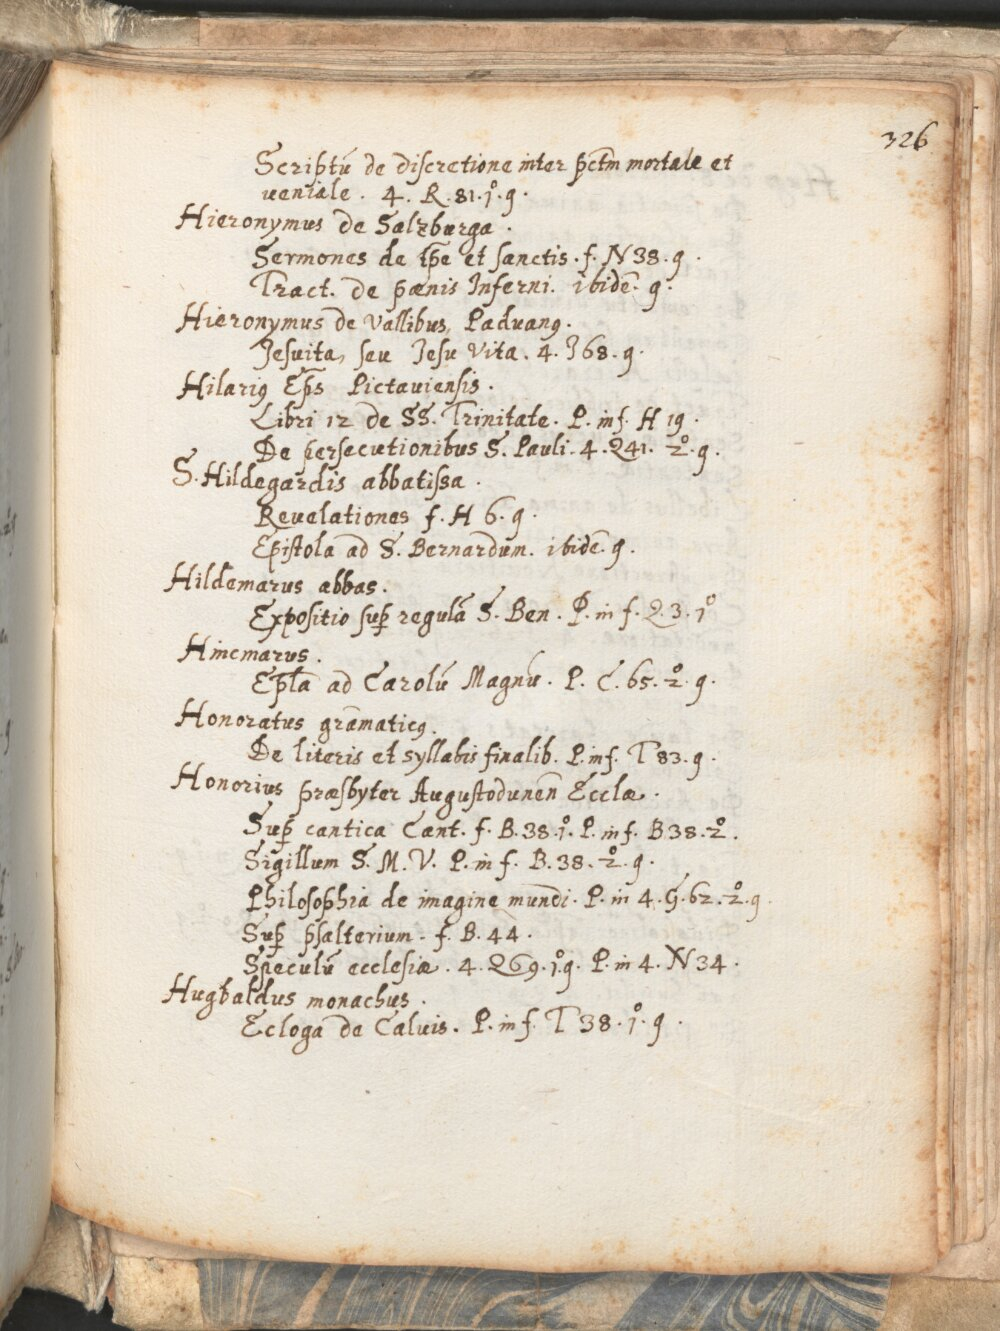 326
Scriptũ de discretione inter pctm̃ mortale et
ueniale. 4. R. 81. 1º. 9.
Hieronymus de Salzburga.
Sermones de tp̃e et sanctis. f. N 38. 9.
Tract. de pænis Inferni. ibidẽ. 9.
Hieronymus de Vallibus, Paduanꝰ.
Jesuita, seu Jesu Vita. 4. J 68. 9.
Hilariꝰ Ep̃s Pictauiensis.
Libri 12 de SS. Trinitate. P. in f. H 19.
De persecutionibus S. Pauli. 4. Q41. 2º. 9.
S. Hildegardis abbatissa.
Reuelationes f. H 6. 9.
Epistola ad S. Bernardum. ibidẽ. 9.
Hildemarus abbas.
Expositio sup̱ regulã S. Ben. P. in f. Q. 3. 1º
Hincmarus.
Ep̃la ad Carolũ Magnũ. P. C. 65. 2º. 9.
Honoratus grãmaticꝰ.
De literis et syllabis finalib. P. in f. T 83. 9.
Honorius præsbyter Augustodunen̄ Eccl̃æ.
Sup̱ cantica Cant. f. B. 38. 1º. P. in f. B 38. 2º.
Sigillum S. M. V. P. in f. B. 38. 2º. 9.
Philosophia de imagine mundi. P. in 4. G. 62. 2º. 9
Sup̱ psalterium. f. B. 44.
Speculũ ecclesiæ. 4. Q69. 1º. 9. P. in 4. N 34.
Hugbaldus monachus.
Ecloga de Caluis. P. in f. T 38. 1º. 9.